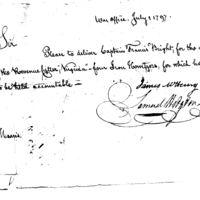 War Office, July 1 1797.
Sir
Please to deliver Captain Francis Bright, for the use of
the Revenue Cutter, Virginia - four Iron Howitzers, for which he
to be held accountable -
James McHenry
Samuel Hodgdon